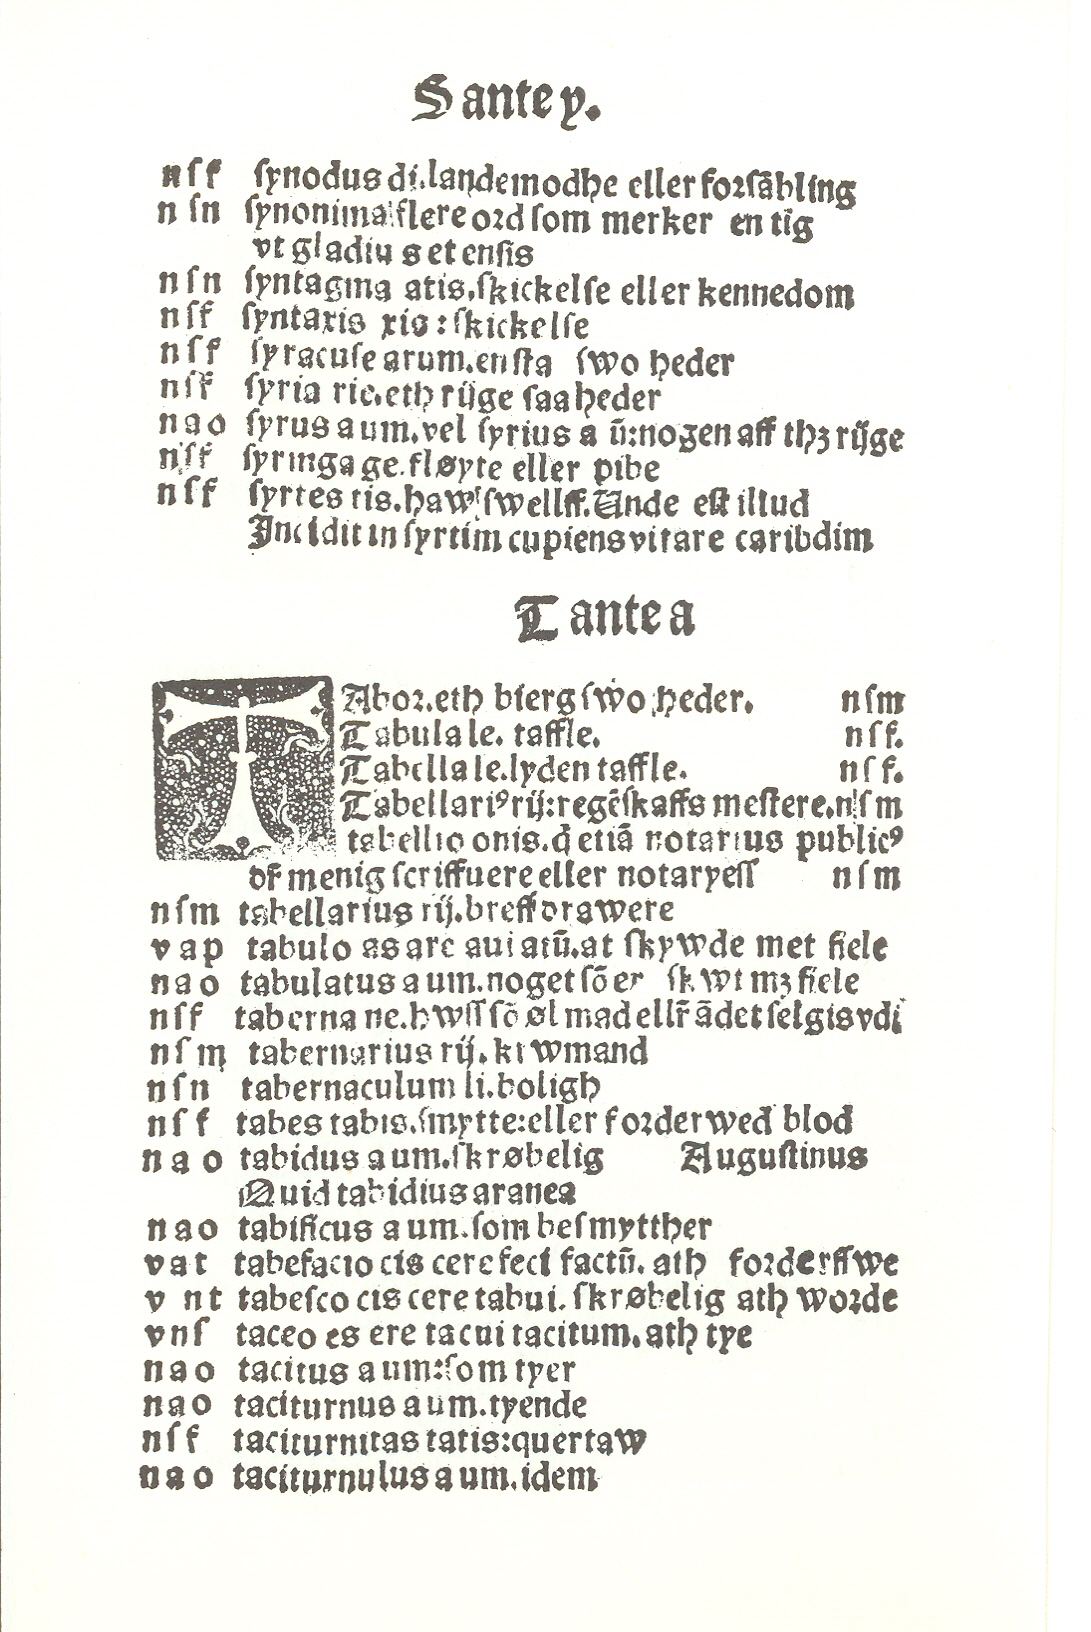 S ante y.
n ſ f ſynodus di. landemodhe eller forſãbling
n ſn ſynonima flere ord ſom merker en tĩg
vt gladiu s et enſis
n ſ n ſyntagma atis. ſkickelſe eller kennedom
n ſf ſyntaxis xis: ſkickelſe
n ſ f ſyracuſe arum. en ſta ſwo heder
n ſf ſyria rie. eth rijge ſaa heder
n a o ſyrus a um. vel ſyrius a ũ: nogen aff thꝫ rijge
n ſf ſyringa ge. fløyte eller pibe
n ſ f ſyrtes tis. hawſſwellff. Unde eſt illud
Incidit in ſyrtim cupiens vitare caribdim
T ante a
TAbor. eth bierg ſwo heder. n ſ m
Tabula le. taffle. n ſ f.
Tabella le. lyden taffle. n ſ f.
Tabellariꝰ rij: regẽſkaffs meſtere. n ſ m
tabellio onis. q̃ etiã notarius publicꝰ
oſ menig ſcriffuere eller notaryeſſ n ſ m
n ſ m tabellarius rij. breff drawere
v a p tabulo as are aui atũ. at ſkywde met fiele
n a o tabulatus a um. noget ſõ er ſkwt mꝫ fiele
n ſ f taberna ne. hwſſ ſõ øl mad ellr̃ ãdet ſelgis vdi
n ſ m tabernarius rij. krwmand
n ſ n tabernaculum li. boligh
n ſ f tabes tabis. ſmytte: eller forderwed blod
n a o tabidus a um. ſkrøbelig Auguſtinus
Quid tabidius aranea
n a o tabificus a um. ſom beſmytther
v a t tabefacio cis cere feci factũ. ath forderffwe
v n t tabeſco cis cere tabui. ſkrøbelig ath worde
v n ſ taceo es ere tacui tacitum. ath tye
n a o tacitus a um: ſom tyer
n a o taciturnus a um. tyende
n ſ f taciturnitas tatis: quertaw
n a o taciturnulus a um. idem